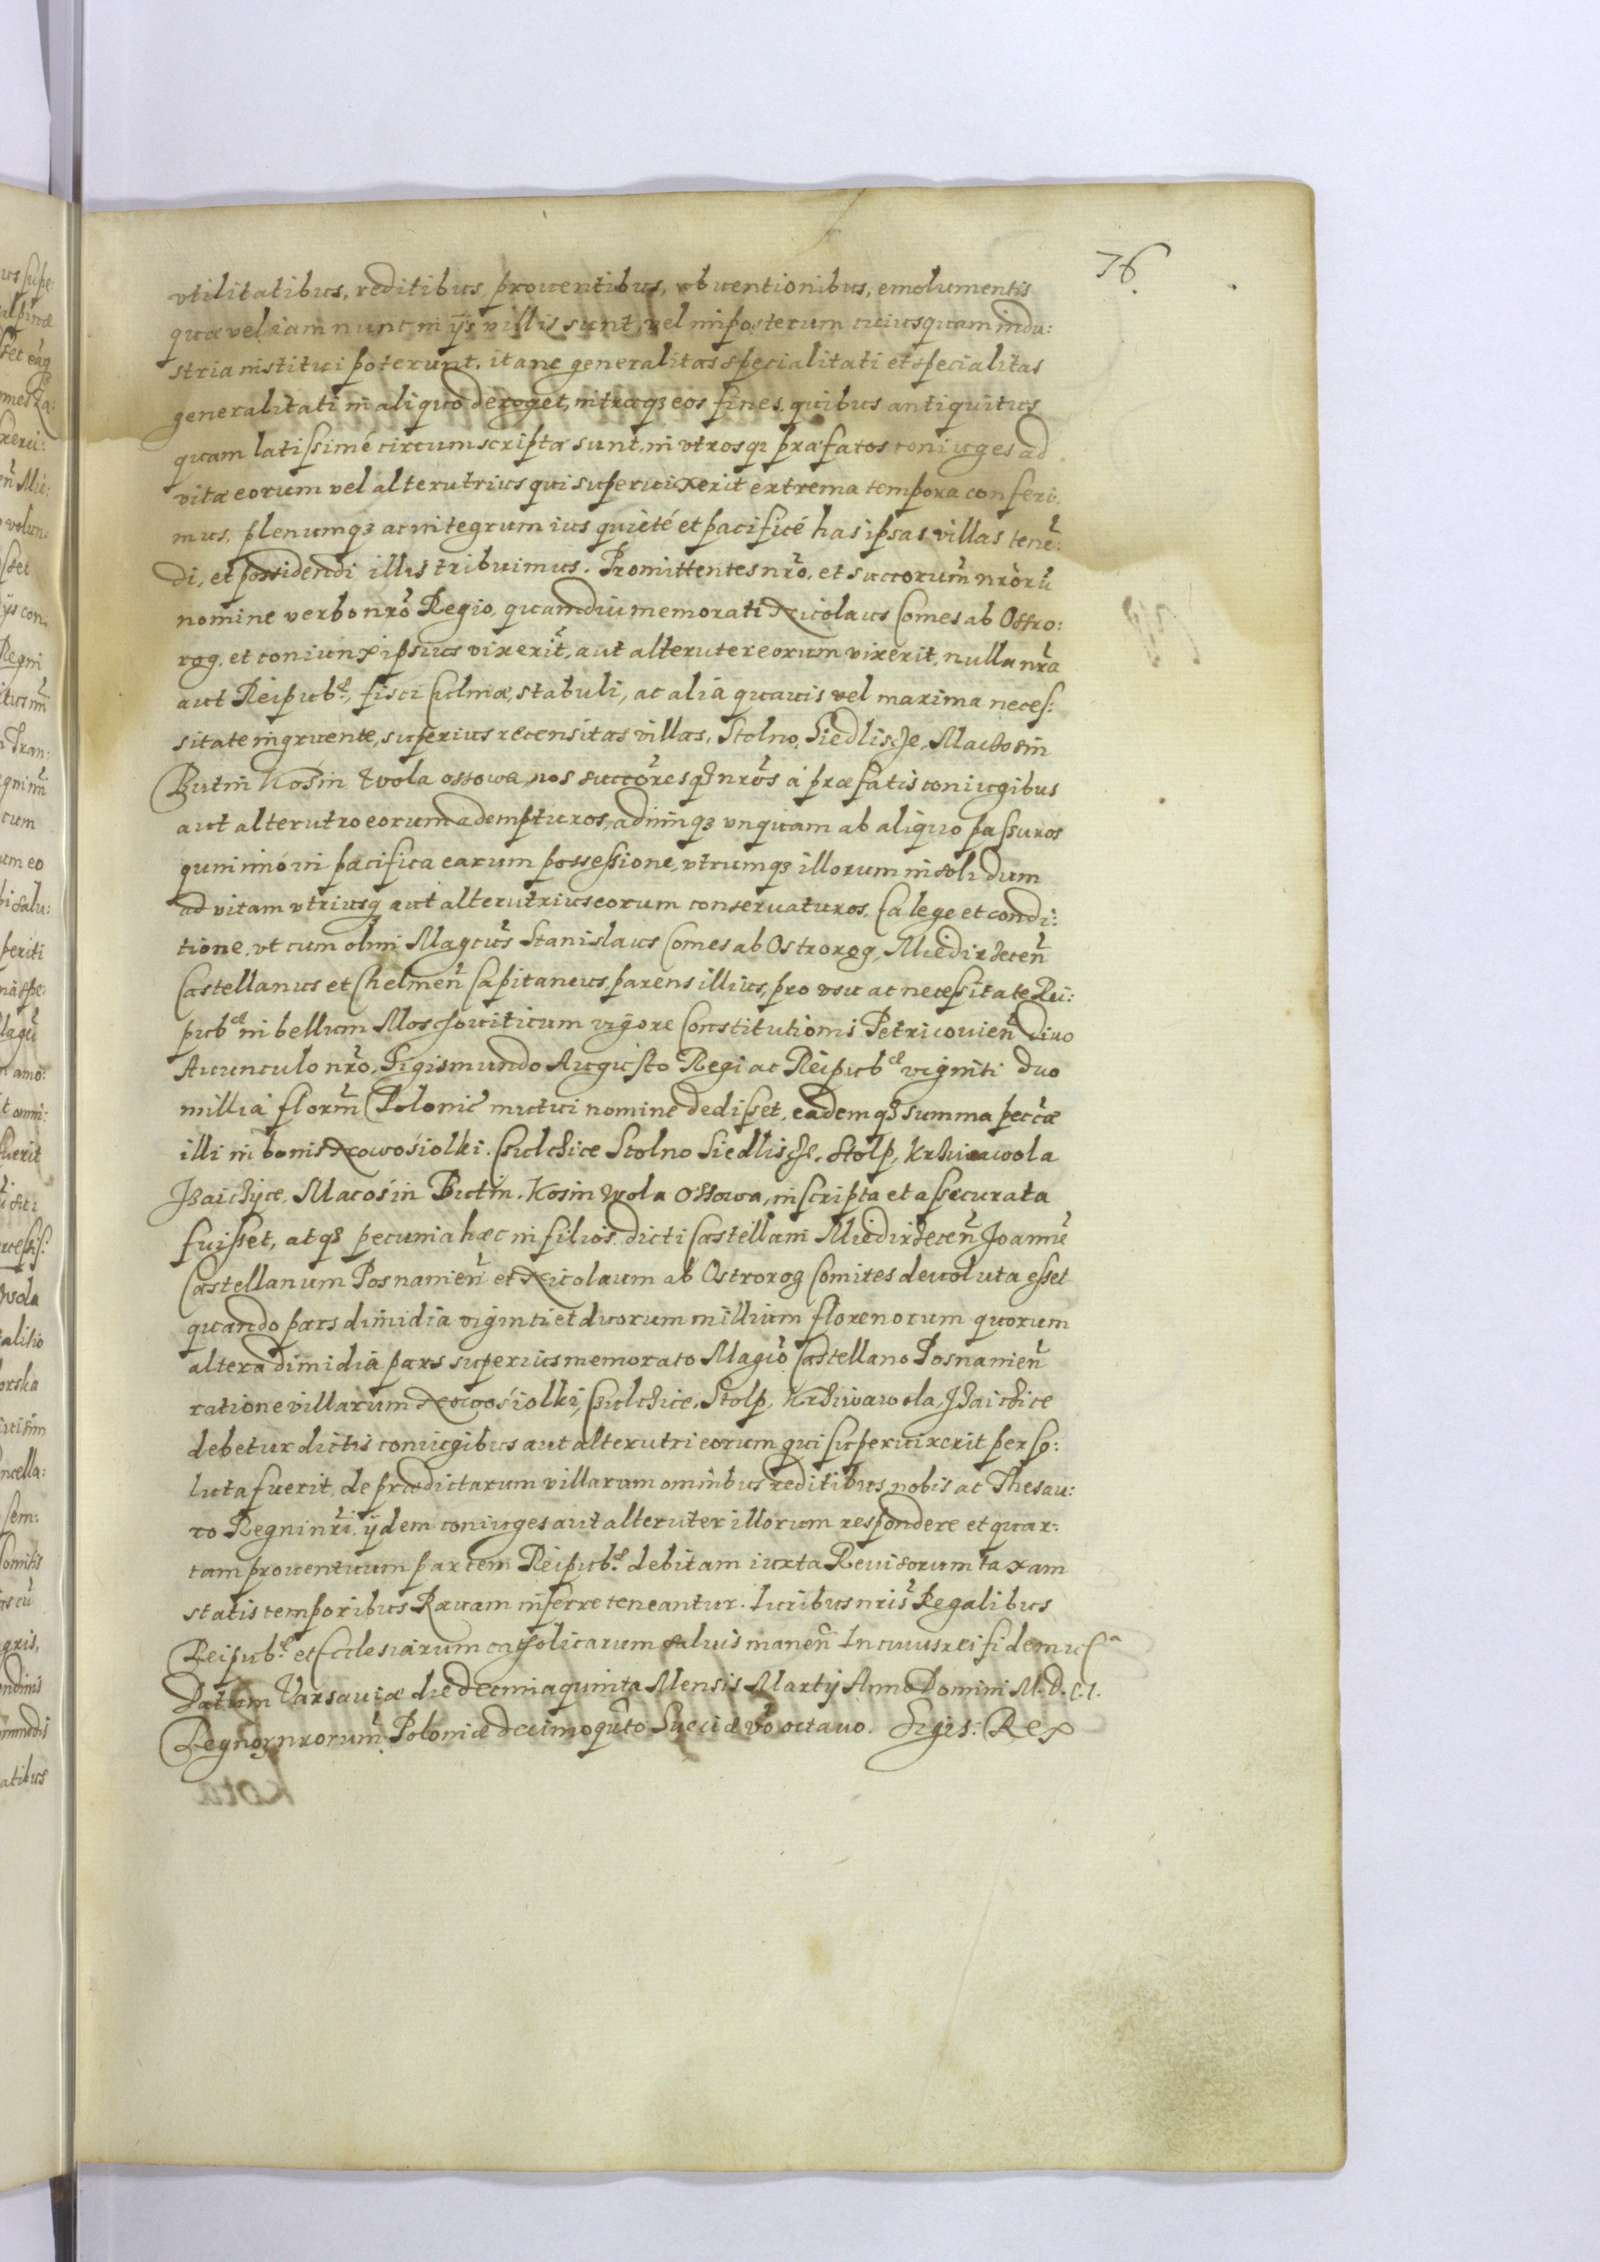 76.
vtilitatibus, reditibus, prouentibus, obuentionibus, emolumentis
quæ vel iam nunc in ijs villis sunt, vel in posterum cuiusquam indu:
stria institui poterunt, ita ne generalitas specialitati et specialitas
generalitati in aliquo deroget, intraq3 eos fines, quibus antiquitus
quam latissimé circumscriptæ sunt, in vtrosq3 præfatos coniuges ad
vitæ eorum vel alterutrius qui superuixerit extrema tempora conferi:
mus, plenumq3 ac integrum ius quieté et pacificé has ipsas villas tenẽ:
di, et possidendi illis tribuimus. Promittentes nr̃o, et succorum̃ nrõrũ
nomine verbo nrõ Regio, quamdiu memorati Nicolaus Comes ab Ostro:
rog, et coniunx ipsius vixerĩt, aut alteruter eorum vixerit, nulla nrã
aut Reipub:, fisci Culinæ, stabuli, ac alia quauis vel maxima neces:
sitate ingruente, superius recensitas villas, Stolno, Siedliscze, Maciosin
Butin Kosin Wola ossowa, nos succõresq3 nrõs á præfatis coniugibus
aut alterutro eorum adempturos, adimiq3 vnquam ab aliquo passuros
quinimó in pacifica earum possessione, vtrumq3 illorum in solidum
ad vitam vtriusq3 aut alterutrius eorum conseruaturos. Ea lege et condi:
tione, vt cum olim Magcus̃ Stanislaus Comes ab Ostrorog, Miedirzecen̂
Castellanus et Chelmen̂ Capitaneus, parens illius, pro vsu ac necessitate Rei:
pub in bellum Moschouiticum vigore Constitutionis Petricouien̂ Diuo
Auunculo nrõ, Sigismundo Augusto Regi ac Reipub viginti duo
millia florm̃ Polonic̃ mutui nomine dedisset, eademq3 summa peccæ
illi in bonis Nowosiolki. Culchice Stolno Siedliscze, Stolp, Krhiwawola
Jhaichyce, Macosin Butin. Kosin Wola Ossowa, inscripta et assecurata
fuisset, atq3 pecunia hæc in filios dicti Castellani Miedirzecen̂ Joannẽ
Castellanum Posnanien̂ et Nicolaum ab Ostrorog Comites deuoluta esset
quando pars dimidia viginti et duorum millium florenorum quorum
altera dimidia pars superius memorato Magcõ Castellano Posnanien̂
ratione villarum Nowosiolki, Culchice, Stolp, Krhiwawola, Jhaichice
debetur dictis coniugibus aut alterutri eorum qui superuixerit perso:
luta fuerit, de prædictarum villarum omnibus reditibus nobis ac Thesau:
ro Regni nrĩ, ijdem coniuges aut alteruter illorum respondere et quar:
tam prouentuum partem Reipub: debitam iuxta Reuisorum taxam
statis temporibus Rauam inferre teneantur. Iuribus nris̃ Regalibus
Reipub: et Ecclesiarum catholicarum saluis manen̂ In cuius rei fidem
Datum Varsauiæ die decimaquinta Mensis Martij Anno Domini M.D.C.I.
Regnor nrorum̃ Poloniæ decimoquto Sueciæ vo octauo. Sigis: Rex